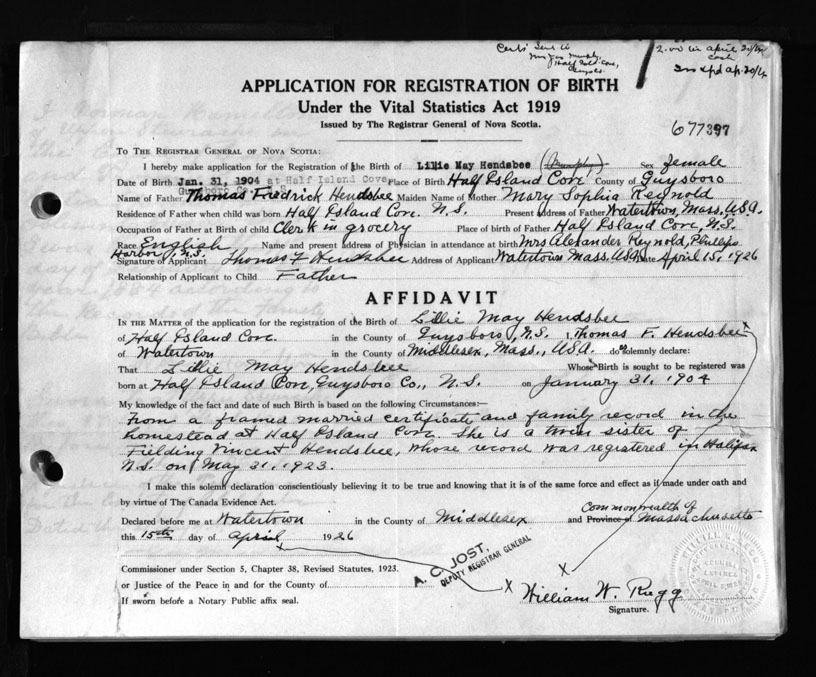 Certi Sent to
Mrs Jas Murphy,
Half Isld Cove,
Guysbo.
2.00 in April 20/26
cash
APPLICATION FOR REGISTRATION OF BIRTH
Under the Vital Statistics Act 1919
Issued by The Registrar General of Nova Scotia.
677397
To The Registrar General of Nova Scotia:
I hereby make application for the Registration of the Birth of Lillie May Hendsbee (Murphy) Sex female
Date of Birth Jan. 31, 1904 at Half Island Cove, Place of Birth Half Island Cove County of Guysboro
Name of Father Thomas Fredrick Hendsbee Maiden Name of Mother Mary Sophia Reynold
Residence of Father when child was born Half Island Cove. N.S. Present address of Father Watertown, Mass, USA.
Occupation of Father at Birth of child Clerk in grocery Place of birth of Father Half Island Cove, N.S.
Race English Name and present address of Physician in attendance at birth Mrs Alexander Reynold, Phillips
Harbor, N.S.
Signature of Applicant Thomas F Hendsbee Address of Applicant Watertown Mass. USA Date April 15, 1926
Relationship of Applicant to Child Father
AFFIDAVIT
In the Matter of the application for the registration of the Birth of Lillie May Hendsbee
of Half Island Cove. in the County of Guysboro, N.S. I, Thomas F. Hendsbee
of Watertown in the County of Middlesex, Mass., USA. do solemnly declare:
That Lillie May Hendsbee Whose Birth is sought to be registered was
born at Half Island Cove, Guysboro Co., N.S. on January 31, 1904
My knowledge of the fact and date of such Birth is based on the following Circumstances:—
From a framed married certificate and family record in the
homestead at Half Island Cove. She is a twin sister of
Fielding Vincent Hendsbee, whose record was registered in Halifax
N.S. on May 31, 1923.
I make this solemn declaration conscientiously believing it to be true and knowing that it is of the same force and effect as if made under oath and
by virtue of The Canada Evidence Act.
Commonwealth of
Declared before me at Watertown in the County of Middlesex and Province of Massachusetts
this 15th day of April 1926
A. C. JOST,
DEPUTY REGISTRAR GENERAL
Commissioner under Section 5, Chapter 38, Revised Statutes, 1923.
or Justice of the Peace in and for the County of
X X William W. Rugg
If sworn before a Notary Public affix seal. Signature.